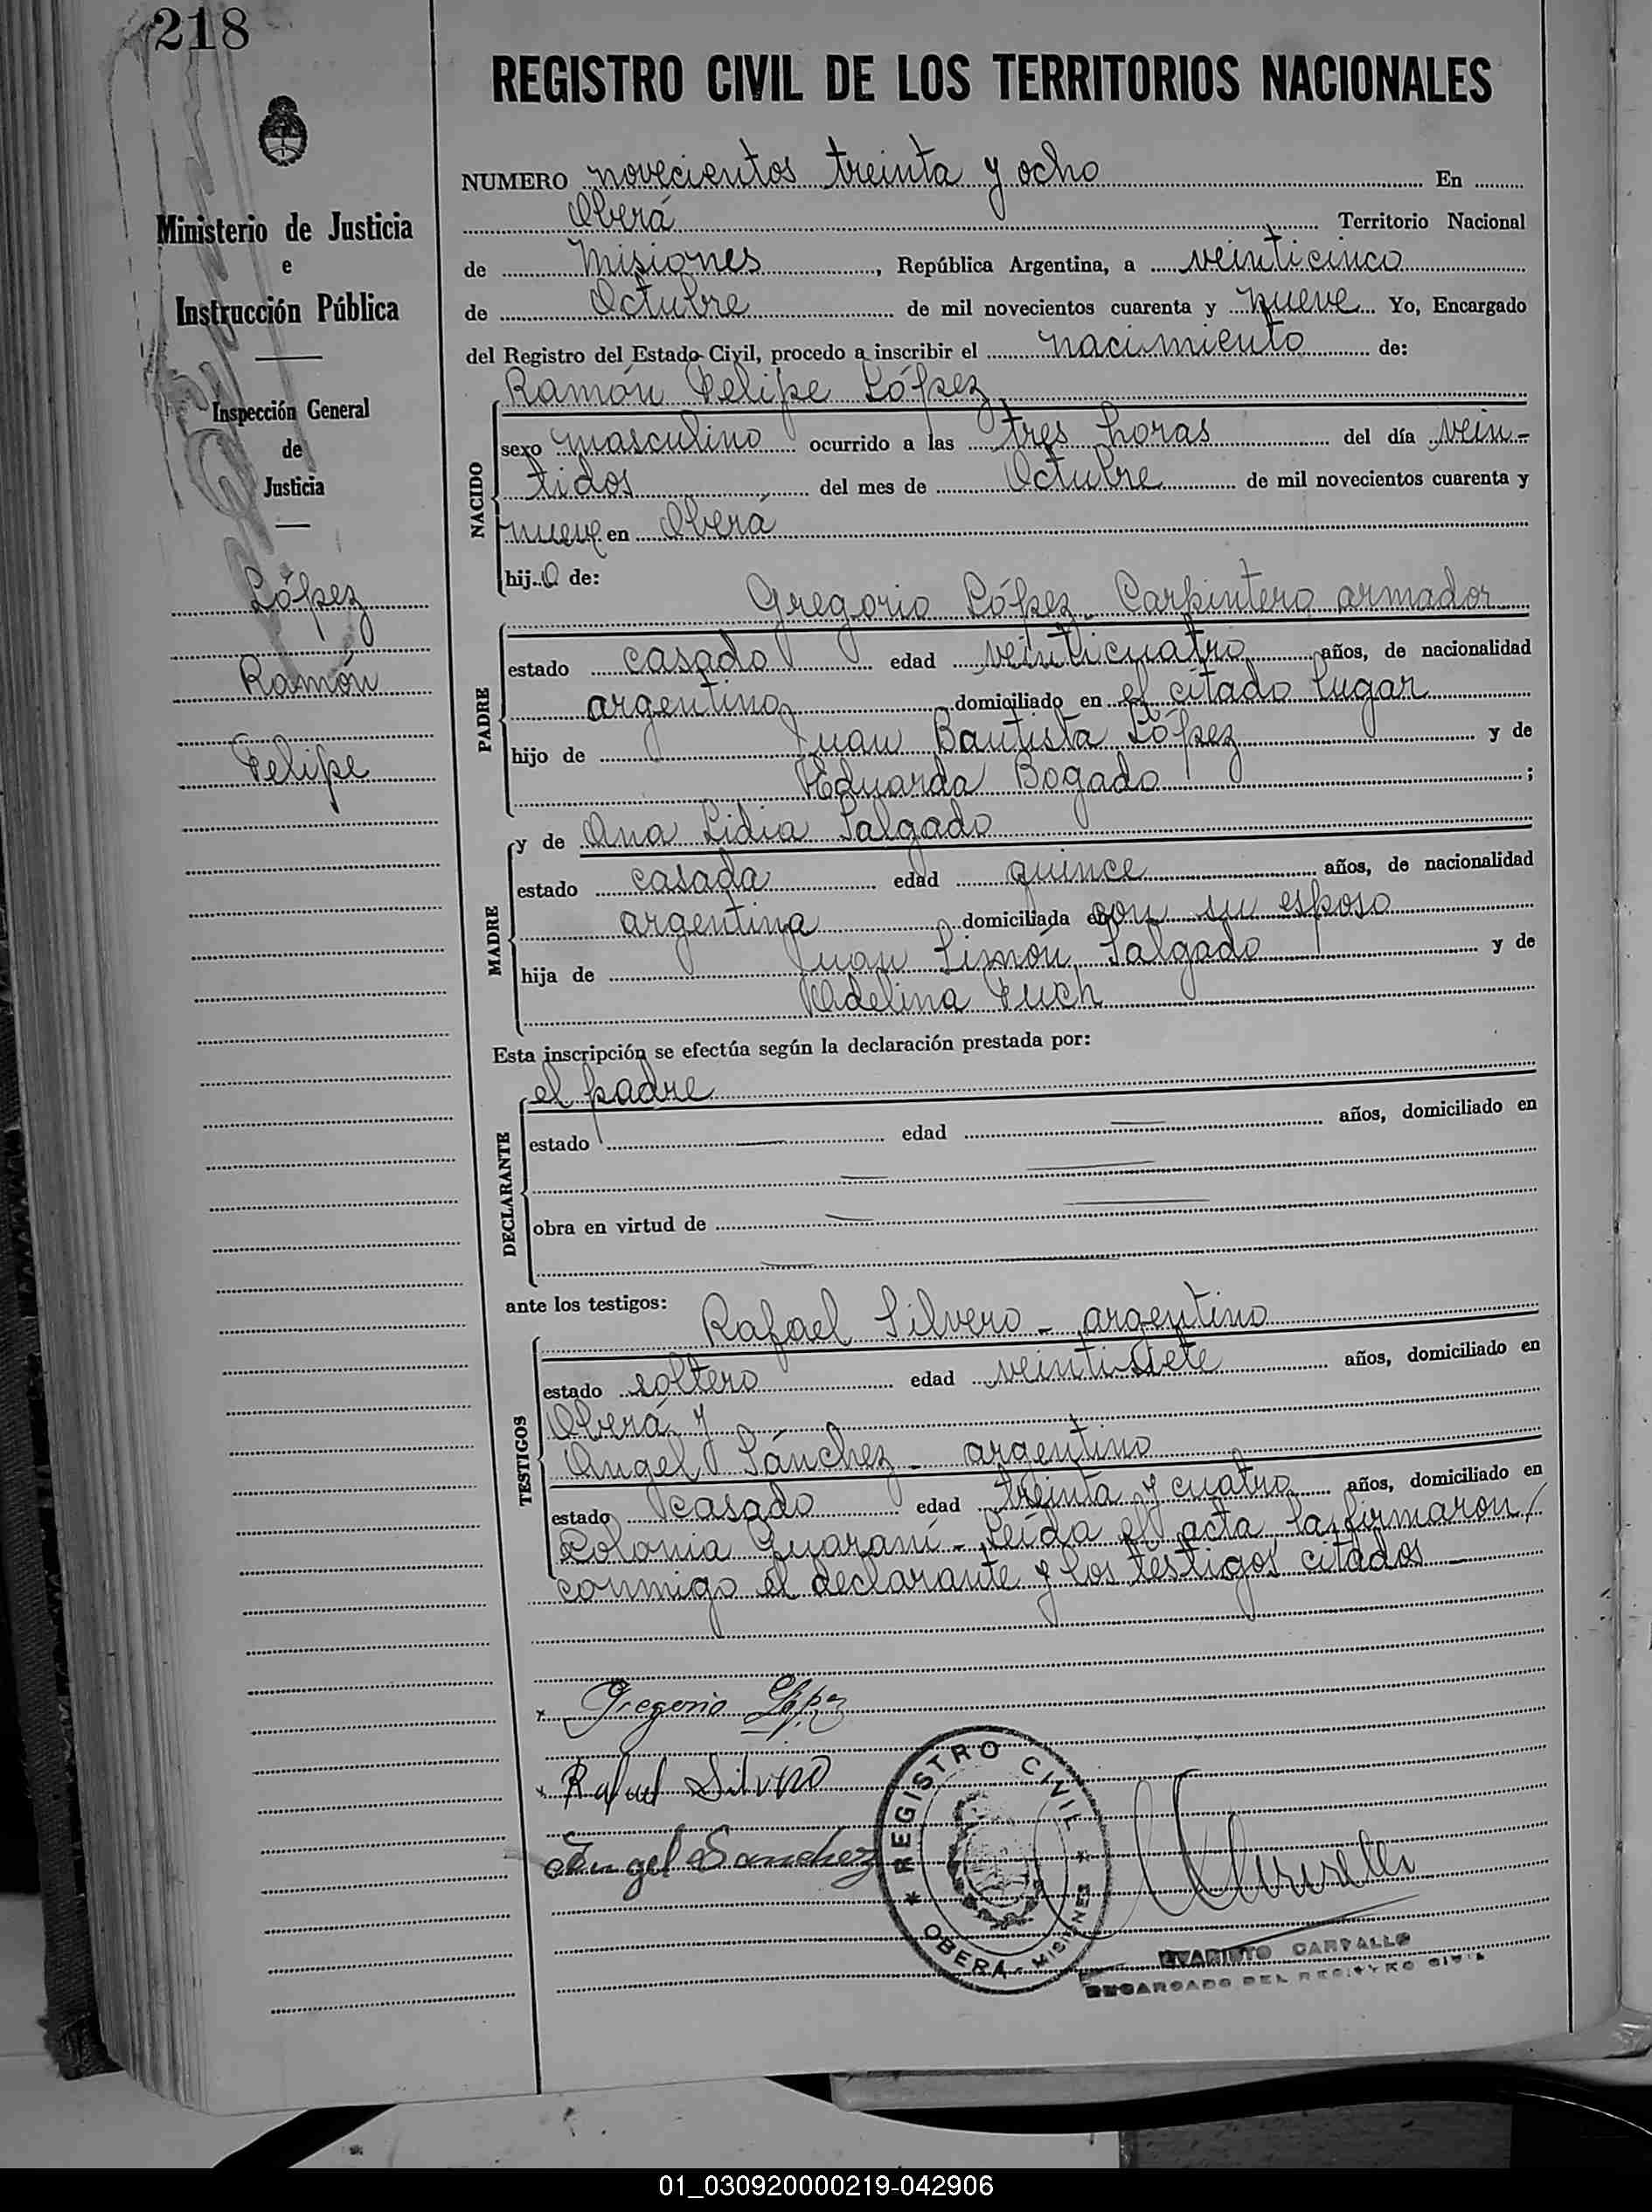 218
REGISTRO CIVIL DE LOS TERRITORIOS NACIONALES
Ministerio de Justicia
e
Instrucción Pública
Inspección General
de
Justicia
López
Ramón
Felipe
NUMERO novecientos treinta y ocho En
Oberá Territorio Nacional
de Misiones, República Argentina, a veinticinco
de Octubre de mil novecientos cuarenta y nueve Yo, Encargado
del Registro del Estado Civil, procedo a inscribir el nacimiento de:
Ramón Felipe López
NACIDO
sexo masculino ocurrido a las tres horas del día vein-
tidos del mes de Octubre de mil novecientos cuarenta y
nueve en Oberá
hijo de:
Gregorio López Carpintero armador
PADRE
estado casado edad veinticuatro años, de nacionalidad
argentino domiciliado en el citado lugar
hijo de Juan Bautista López y de
Eduarda Bogado ;
y de Ana Lidia Salgado
MADRE
estado casada edad quince años, de nacionalidad
argentina domiciliada con su esposo
hija de Juan Simón Salgado y de
Adelina Fuch
Esta inscripción se efectúa según la declaración prestada por:
el padre
DECLARANTE
estado — edad — años, domiciliado en
obra en virtud de
ante los testigos:
Rafael Silvero - argentino
TESTIGOS
estado soltero edad veintisiete años, domiciliado en
Oberá y
Angel Sánchez - argentino
estado casado edad treinta y cuatro años, domiciliado en
Colonia Guaraní - Leída el acta, la firmaron/
conmigo el declarante y los testigos citados —
x Gregorio López
x Rafael Silvero
Angel Sanchez
REGISTRO CIVIL
OBERÁ - MISIONES
EVARISTO CARVALLO
ENCARGADO DEL REGISTRO CIVIL
01_030920000219-042906